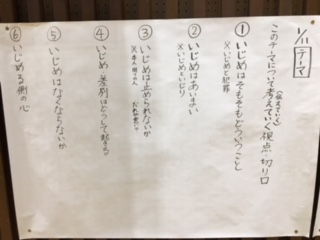 1/11 テーマ
このテーマについて考えていく視点・切り口
(伝えていく)
① いじめはそもそもどういうこと
※いじめと犯罪
② いじめはあいまい
※いじめといじり
③ いじめは止められないか
④ いじめ、差別はどうして起きる
⑤ いじめはなくならないか
⑥ いじめる側の心